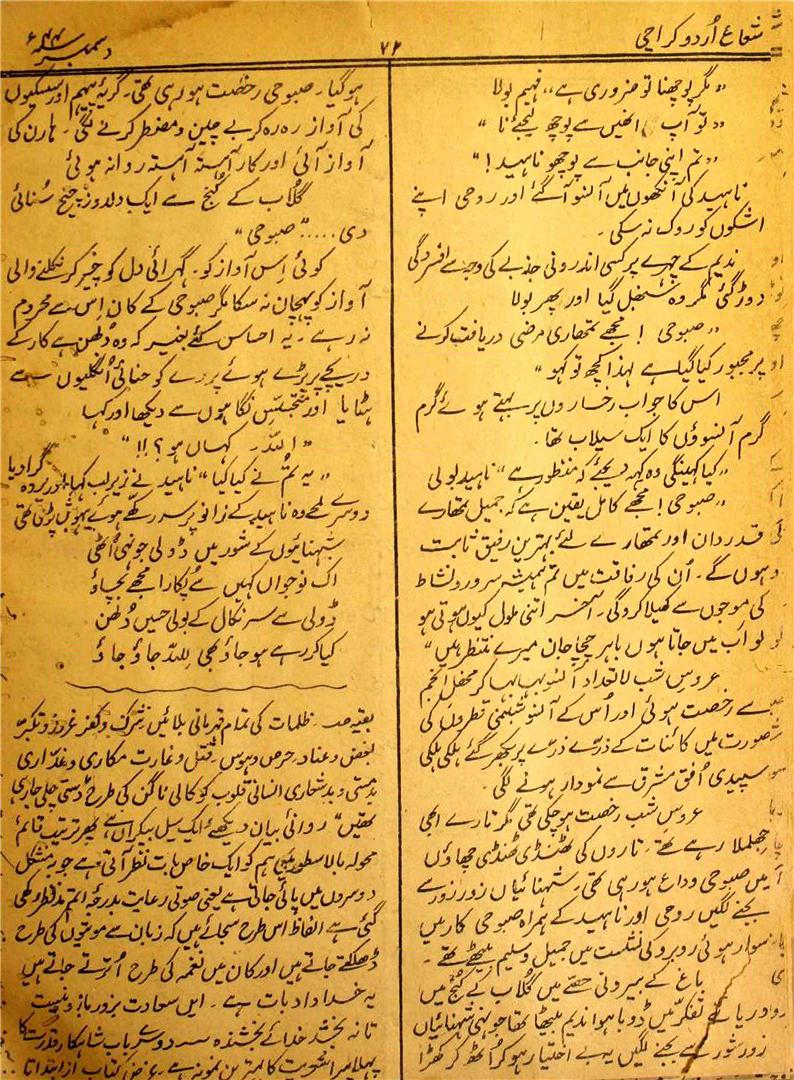 شعاع اُردو کراچی
۷۲
دسمبر سنہ ۴۴ء
"مگر پوچھنا تو ضروری ہے،، فہیم بولا
"تو آپ انھیں سے پوچھ لیجئے نا"
"تم اپنی جانب سے پوچھو ناہید!"
ناہید کی آنکھوں میں آنسو آگئے اور روحی اپنے
اشکوں کو روک نہ سکی۔
ندیم کے چہرے پر کسی اندرونی جذبے کی وجہ سے افسردگی
دوڑ گئی مگر وہ سنبھل گیا اور پھر بولا
"صبوحی! مجھے تمھاری مرضی دریافت کرنے
پر مجبور کیا گیا ہے لہذا کچھ تو کہو"
اس کا جواب رخساروں پر بہتے ہوئے گرم
گرم آنسوؤں کا ایک سیلاب تھا۔
"کیا کہینگی وہ کہہ دیجئے کہ منظور ہے" ناہید بولی
"صبوحی! مجھے کامل یقین ہے کہ جمیل تمھارے
قدردان اور تمھارے لئے بہترین رفیق ثابت
ہوں گے۔ اُن کی رفاقت میں تم ہمیشہ سرور و نشاط
کی موجوں سے کھیلا کروگی۔ آخر اتنی ملول کیوں ہوتی ہو
لو اب میں جاتا ہوں باہر چچا جان میرے منتظر ہیں"
عروسِ شب لاتعداد آنسو بہا بہا کر محفلِ انجم
سے رخصت ہوئی اور اُس کے آنسو شبنمی قطروں کی
صورت میں کائنات کے ذرے ذرے پر بکھر گئے ہلکی ہلکی
سپیدی اُفق مشرق سے نمودار ہونے لگی۔
عروسِ شب رخصت ہو چکی تھی مگر تارے ابھی
جھلملا رہے تھے۔ تاروں کی ٹھنڈی ٹھنڈی چھاؤں
میں صبوحی وداع ہو رہی تھی۔ شہنائیاں زور زور سے
بجنے لگیں روحی اور ناہید کے ہمراہ صبوحی کار میں
سوار ہوئی روبرو کی نشست میں جمیل و سلیم بیٹھے تھے۔
باغ کے بیرونی حصّے میں گلاب کے کنج میں
دریائے تفکر میں ڈوبا ہوا ندیم بیٹھا تھا جونہی شہنائیاں
زور شور سے بجنے لگیں یہ بے اختیار ہو کر اُٹھ کر کھڑا
ہوگیا۔ صبوحی رخصت ہو رہی تھی۔ گریۂ پیہم اور سسکیوں
کی آواز رہ رہ کر بے چین و مضطر کرنے لگی۔ ہارن کی
آواز آئی اور کار آہستہ آہستہ روانہ ہوئی
گلاب کے کنج سے ایک دلدوز چیخ سُنائی
دی....."صبوحی"
کوئی اِس آواز کو۔ گہرائی دل کو چیر کر نکلنے والی
آواز کو پہچان نہ سکا مگر صبوحی کے کان اِس سے محروم
نہ رہے۔ یہ احساس کئے بغیر کہ وہ دُلھن ہے کار کے
دریچے پر پڑے ہوئے پردے کو حنائی اُنگلیوں سے
ہٹایا اور متجسّس نگاہوں سے دیکھا اور کہا
"اللہ۔ کہاں ہو؟!!"
"یہ تُم نے کیا کیا" ناہید نے زیر لب کہا اور پردہ گرا دیا
دوسرے لمحے وہ ناہید کے زانو پر سر رکھے ہوئے بیہوش پڑی تھی
شہنائیوں کے شور میں ڈولی جونہی اُٹھی
اک نوجواں کہیں سے پُکارا مجھے بچاؤ
ڈولی سے سر نکال کے بولی حسیں دُلھن
کیا کر رہے ہو جاؤ بھی لِلّٰلہ جاؤ جاؤ
بقیہ صہ۔ ظلمات کی تمام قہرمانی بلائیں شرک و کفر غرور و تکبر
بغض و عناد۔ حرص و ہوس۔ قتل و غارت مکاری و غداری
بدمستی و بدشعاری انسانی قلوب کو کالی ناگن کی طرح ڈستی چلی جا رہی
تھیں" روانی بیان دیکھئے ایک سیل بیکراں ہے پھر ترتیب قائم
محولہ بالا سطور میں ہم کو ایک خاص بات نظر آتی ہے جو بمشکل
دوسروں میں پائی جاتی ہے یعنی صوتی رعایت بدرجۂ اتم مدنظر رکھی
گئی ہے الفاظ اس طرح سجائے ہیں کہ زبان سے موتیوں کی طرح
ڈھلکتے جاتے ہیں اور کان میں نغمہ کی طرح اُترتے جاتے ہیں
یہ خداداد بات ہے۔ ایں سعادت بزور بازو نیست
تا نہ بخشد خدائے بخشندہ دوسرے باب شاہکار قدرت کا